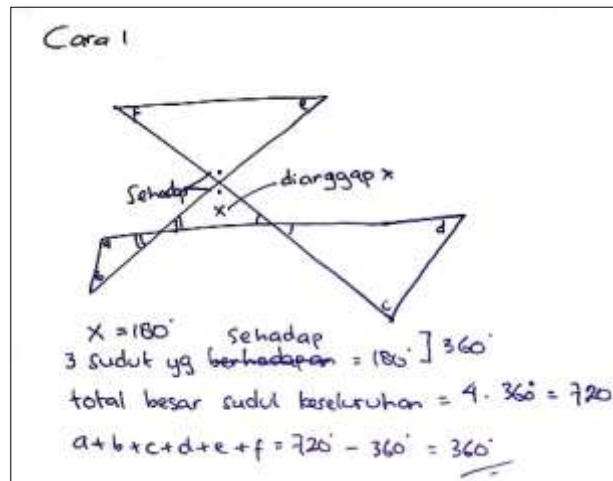 Cara 1
f
e
Sehadap
x
dianggap x
a
b
d
c
x = 180°
sehadap
3 sudut yg berhadapan = 180° ] 360°
total besar sudut keseluruhan = 4 . 360° = 720
a + b + c + d + e + f = 720° - 360° = 360°